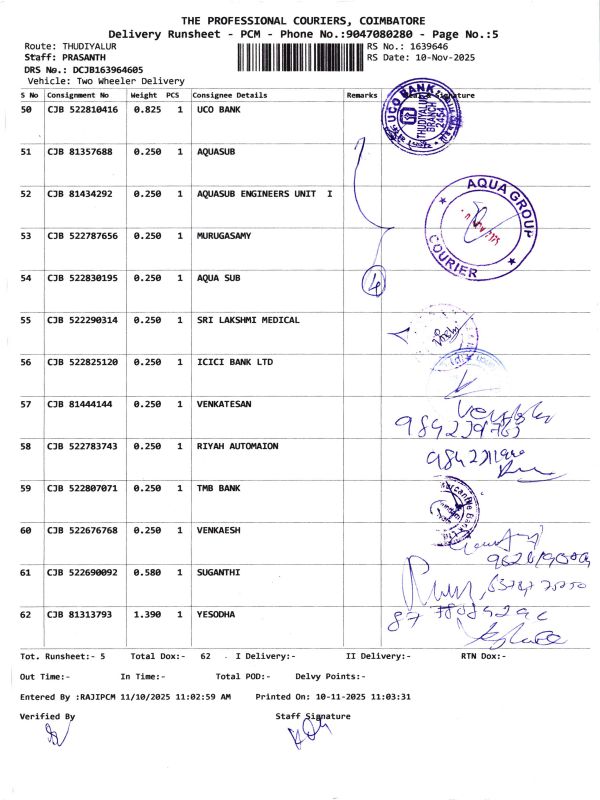 THE PROFESSIONAL COURIERS, COIMBATORE
Delivery Runsheet - PCM - Phone No.:9047080280 - Page No.:5
Route: THUDIYALUR
RS No.: 1639646
Staff: PRASANTH
RS Date: 10-Nov-2025
DRS No.: DCJB163964605
Vehicle: Two Wheeler Delivery
S No Consignment No Weight PCS Consignee Details Remarks Seal & Signature
50 CJB 522810416 0.825 1 UCO BANK
UCO BANK
THUDIYALUR
BRANCH
2454
51 CJB 81357688 0.250 1 AQUASUB
52 CJB 81434292 0.250 1 AQUASUB ENGINEERS UNIT I
AQUA GROUP
COURIER
53 CJB 522787656 0.250 1 MURUGASAMY
54 CJB 522830195 0.250 1 AQUA SUB
4
55 CJB 522290314 0.250 1 SRI LAKSHMI MEDICAL
56 CJB 522825120 0.250 1 ICICI BANK LTD
57 CJB 81444144 0.250 1 VENKATESAN
58 CJB 522783743 0.250 1 RIYAH AUTOMAION
59 CJB 522807071 0.250 1 TMB BANK
60 CJB 522676768 0.250 1 VENKAESH
61 CJB 522690092 0.580 1 SUGANTHI
62 CJB 81313793 1.390 1 YESODHA
Tot. Runsheet:- 5 Total Dox:- 62 . I Delivery:- II Delivery:- RTN Dox:-
Out Time:- In Time:- Total POD:- Delvy Points:-
Entered By :RAJIPCM 11/10/2025 11:02:59 AM Printed On: 10-11-2025 11:03:31
Verified By Staff Signature